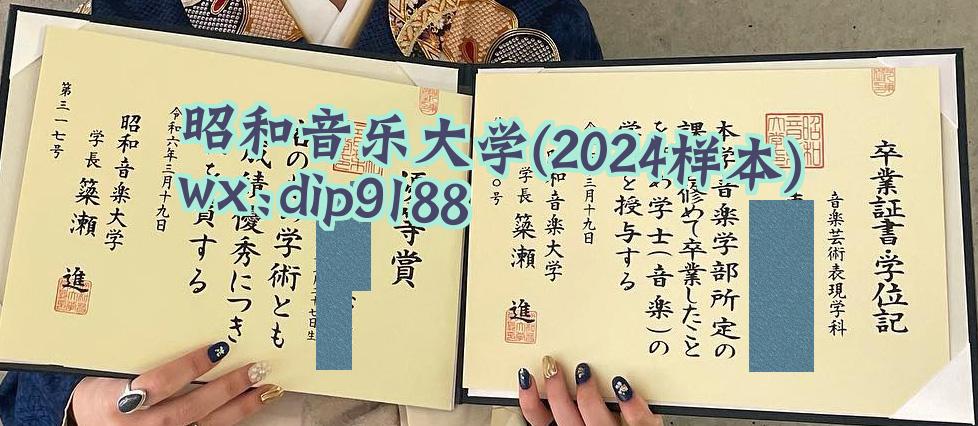 昭和音乐大学(2024样本)
wx:dip9188
卒業証書・学位記
音楽芸術表現学科
本学音楽学部所定の
課
修めて卒業したこと
め学士(音楽)の
学
を授与する
三月十九日
和音楽大学
学長 簗瀬 進
〇号
等賞
十七日生
学術とも
成績優秀につき
を賞する
令和六年三月十九日
昭和音楽大学
学長 簗瀬 進
第三一七号